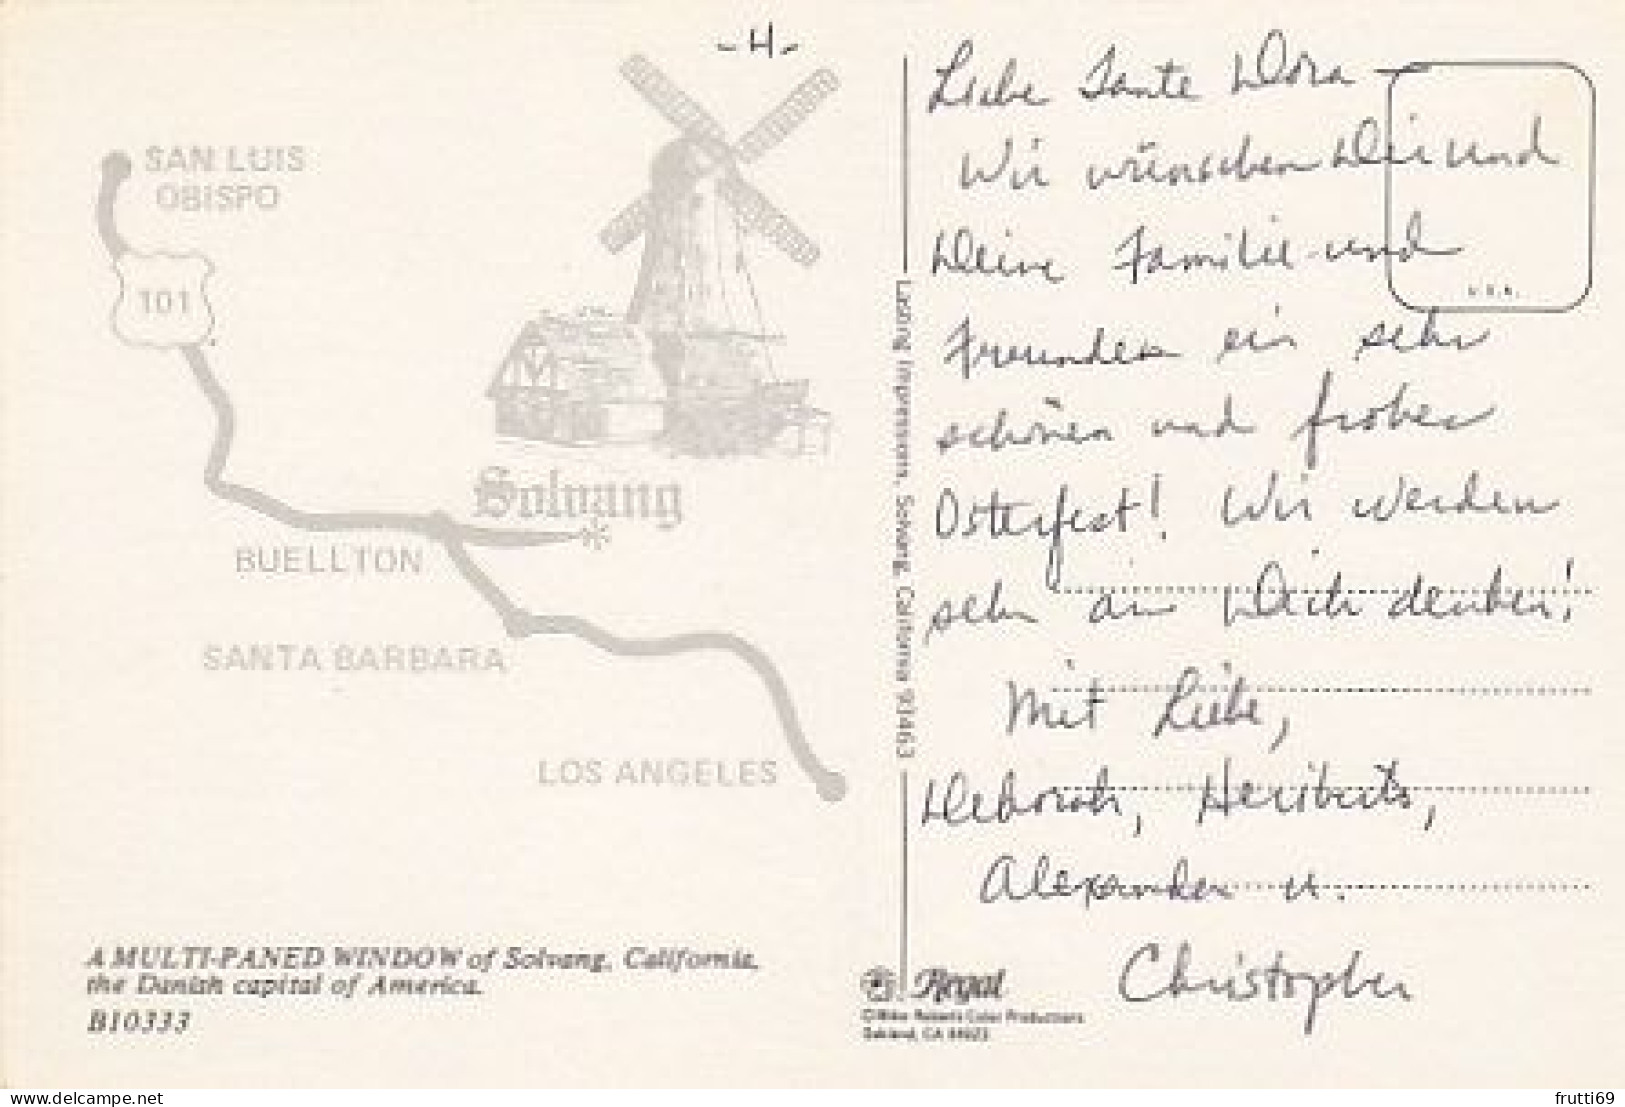 - 4 -
SAN LUIS
OBISPO
101
Solvang
BUELLTON
SANTA BARBARA
LOS ANGELES
A MULTI-PANED WINDOW of Solvang, California,
the Danish capital of America.
B10333
Lasting Impressions, Solvang, California 93463
Regal
©Mike Roberts Color Productions
Oakland, CA 94623
U.S.A.
Liebe Tante Dora —
Wir wünschen Dir und
Deine Familie und
Freunden ein sehr
schönen und frohes
Osterfest! Wir werden
sehr an Dich denken!
Mit Liebe,
Deborah, Heriberto,
Alexander u.
Christopher
delcampe.net
frutti69